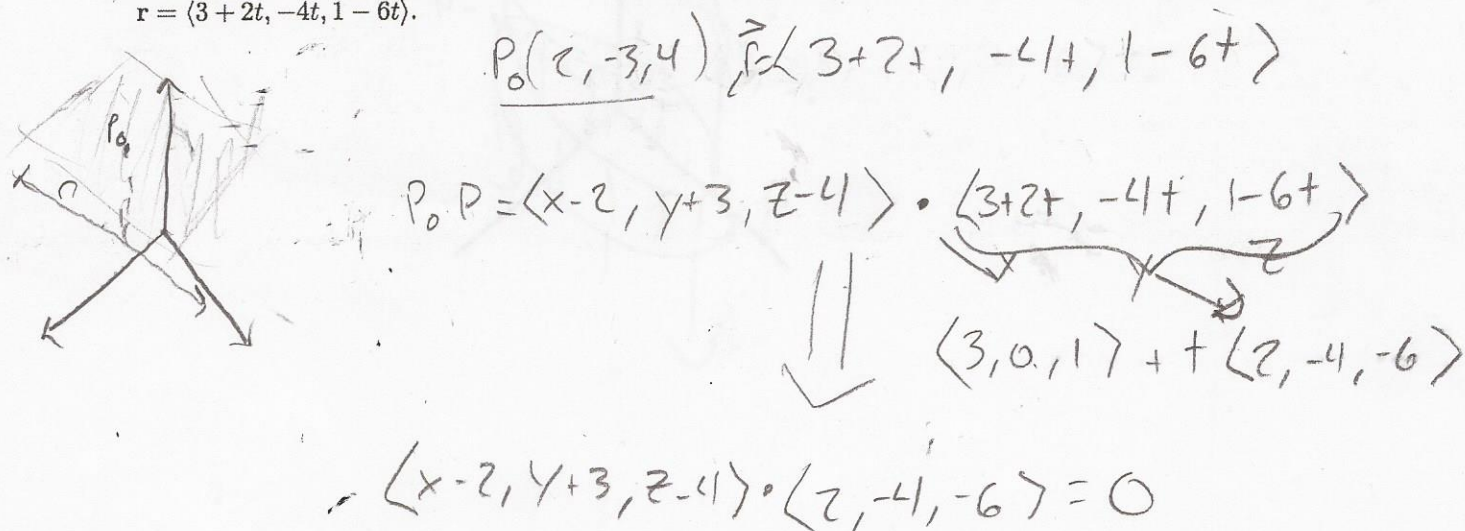 r = ⟨3 + 2t, −4t, 1 − 6t⟩.
P₀(2, -3, 4) r⃗=⟨ 3+2t, -4t, 1-6t ⟩
P₀
r
P₀P = ⟨x-2, y+3, z-4⟩ · ⟨3+2t, -4t, 1-6t⟩
x y z
⟨3, 0, 1⟩ + t⟨2, -4, -6⟩
⟨x-2, y+3, z-4⟩·⟨2, -4, -6⟩ = 0